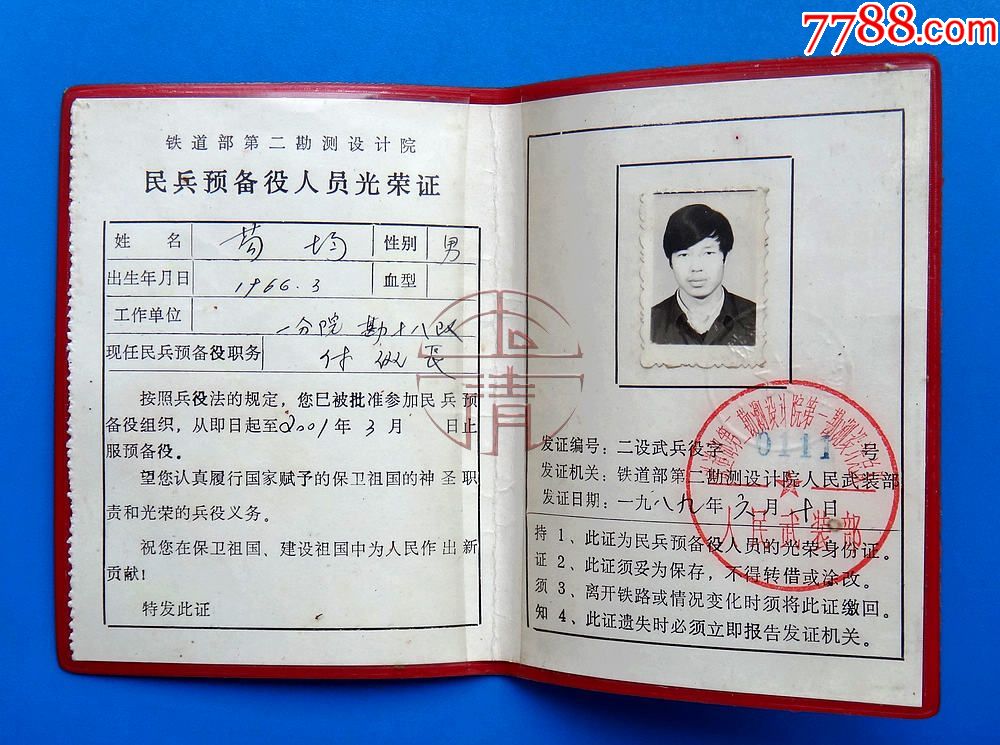 7788.com
铁道部第二勘测设计院
民兵预备役人员光荣证
姓 名 苟 均 性别 男
出生年月日 1966.3 血型
工作单位 一分院 勘十八队
现任民兵预备役职务 付 班 长
按照兵役法的规定，您已被批准参加民兵预
备役组织，从即日起至2001年 3 月 日止
服预备役。
望您认真履行国家赋予的保卫祖国的神圣职
责和光荣的兵役义务。
祝您在保卫祖国、建设祖国中为人民作出新
贡献！
特发此证
发证编号：二设武兵役字 0111 号
发证机关：铁道部第二勘测设计院人民武装部
发证日期：一九八九年 月十日
人民武装部
持证须知
1、此证为民兵预备役人员的光荣身份证。
2、此证须妥为保存，不得转借或涂改。
3、离开铁路或情况变化时须将此证缴回。
4、此证遗失时必须立即报告发证机关。